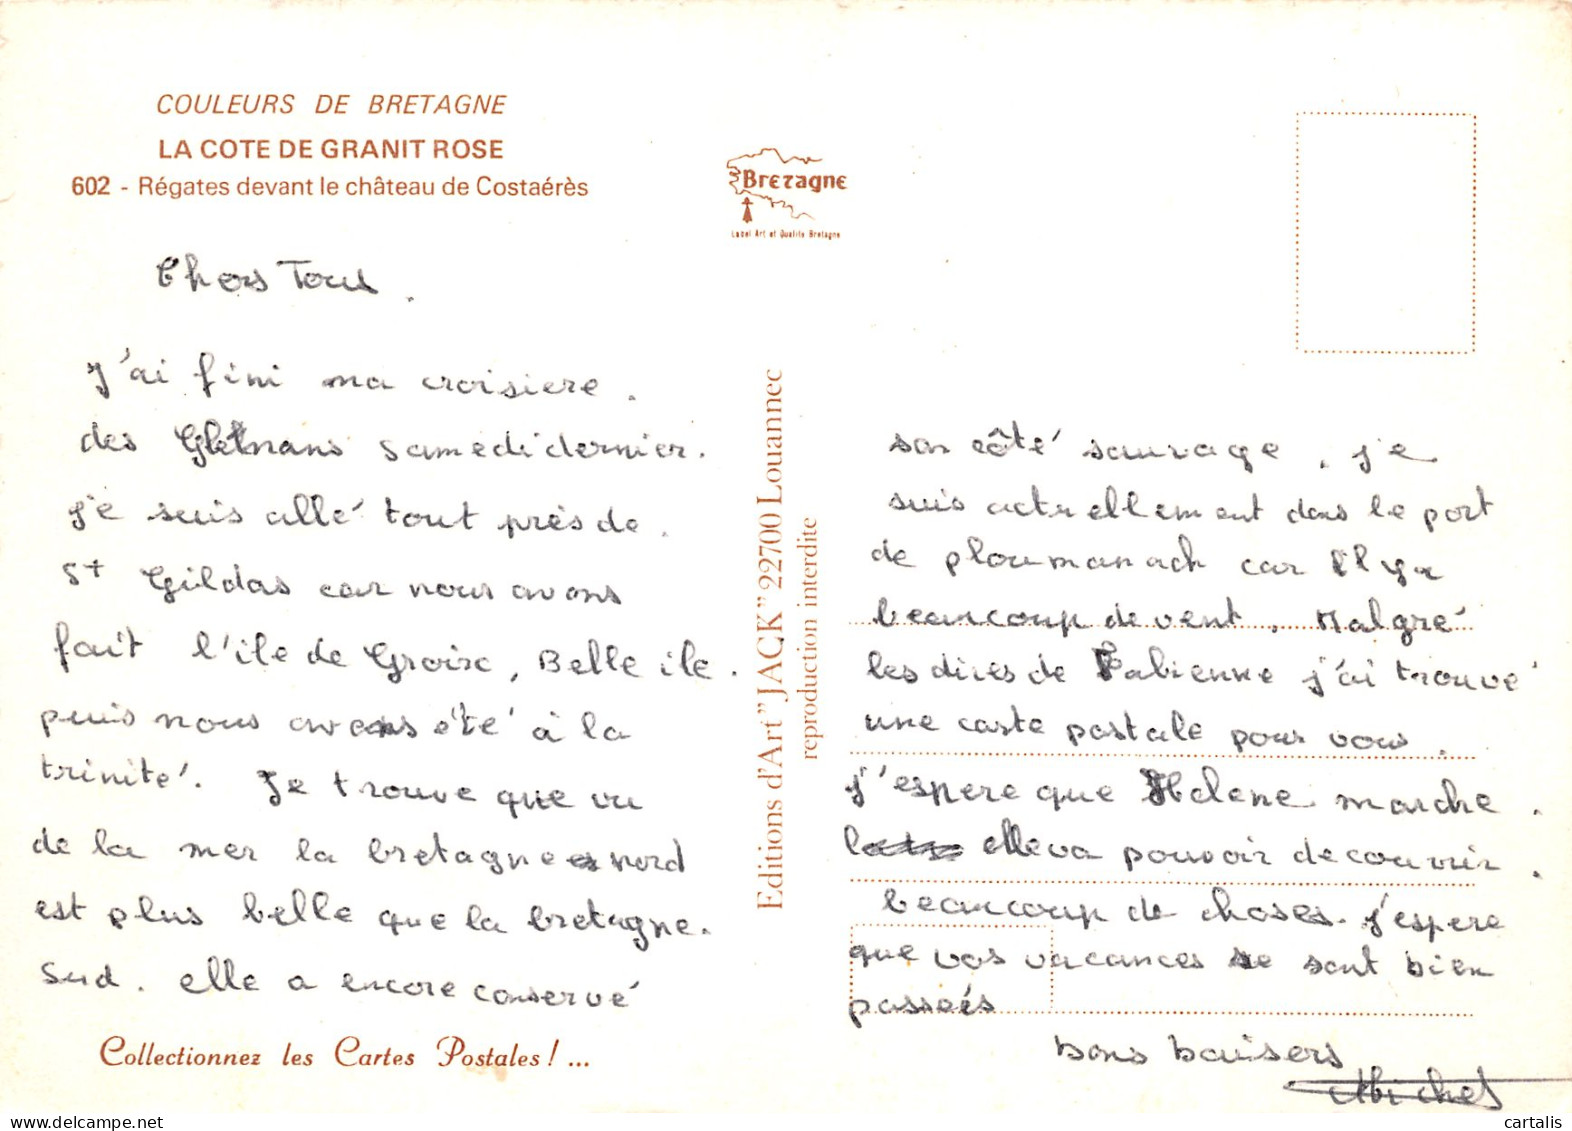 COULEURS DE BRETAGNE
LA COTE DE GRANIT ROSE
602 - Régates devant le château de Costaérès
Bretagne
Label Art et Qualité Bretagne
Chers Tous.
J'ai fini ma croisiere.
des Glénans samedi dernier.
je suis allé tout près de.
St Gildas car nous avons
fait l'ile de Groix, Belle ile.
puis nous avons été à la
trinité. Je trouve que vu
de la mer la bretagne nord
est plus belle que la bretagne.
Sud. elle a encore conservé
Collectionnez les Cartes Postales ! ...
Editions d'Art "JACK" 22700 Louannec
reproduction interdite
son côté sauvage. je
suis actuellement dans le port
de ploumanach car il y a
beaucoup de vent. Malgré
les dires de Fabienne j'ai trouvé
une carte postale pour vous.
j'espere que Helene marche.
elle va pouvoir decouvrir.
beaucoup de choses. j'espere
que vos vacances se sont bien
passeés
bons baisers
Michel
cartalis